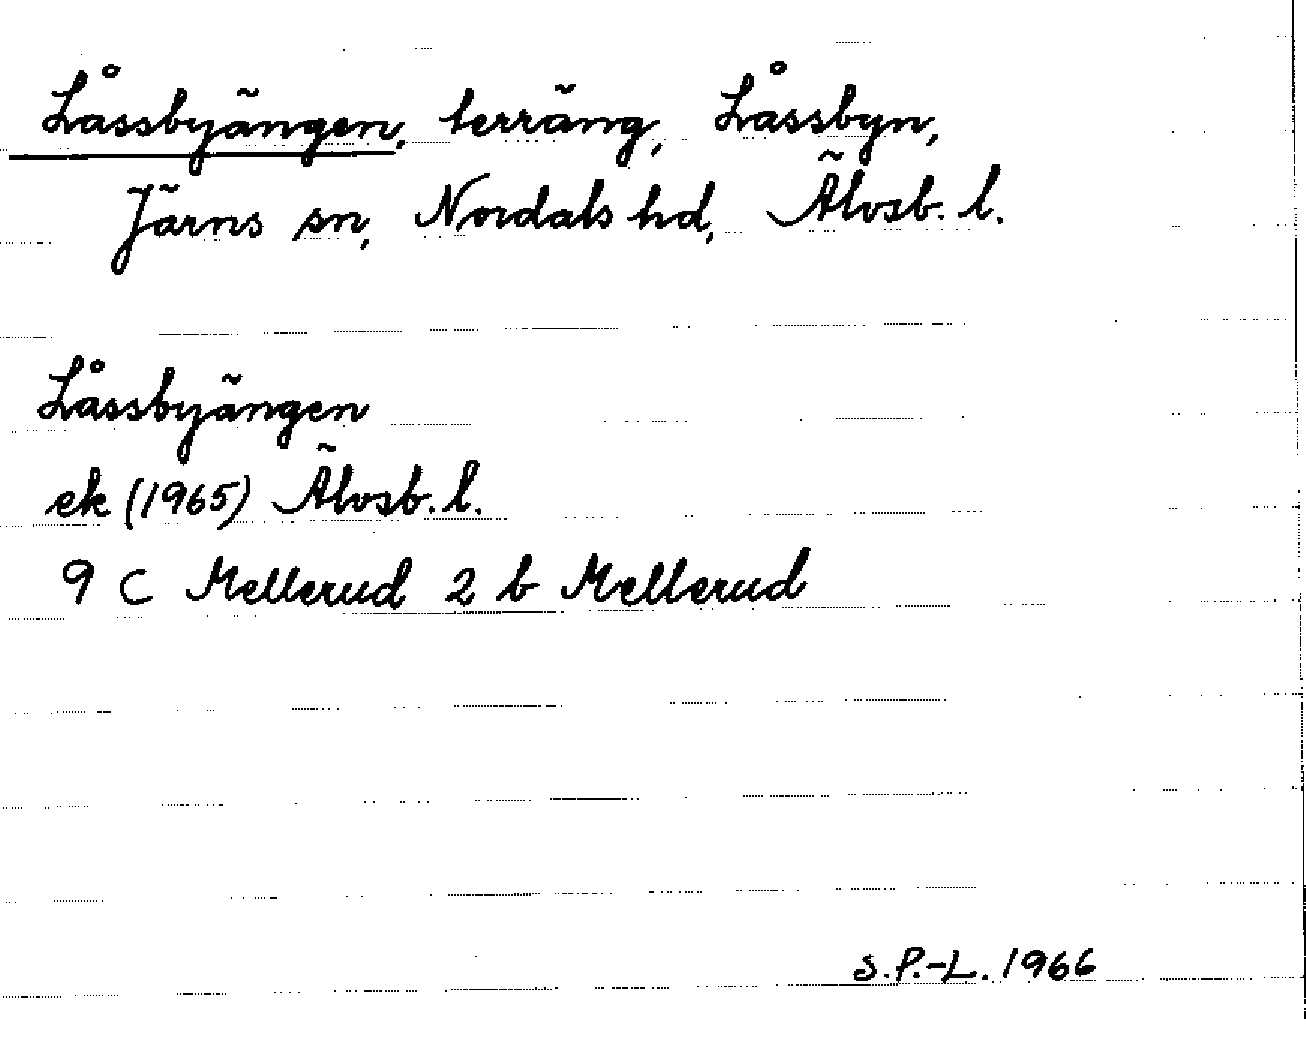 Låssbyängen, terräng, Låssbyn,
Järns sn, Nordals hd, Älvsb. l.
Låssbyängen
ek (1965) Älvsb. l.
9 C Mellerud 2 b Mellerud
S.P.-L. 1966